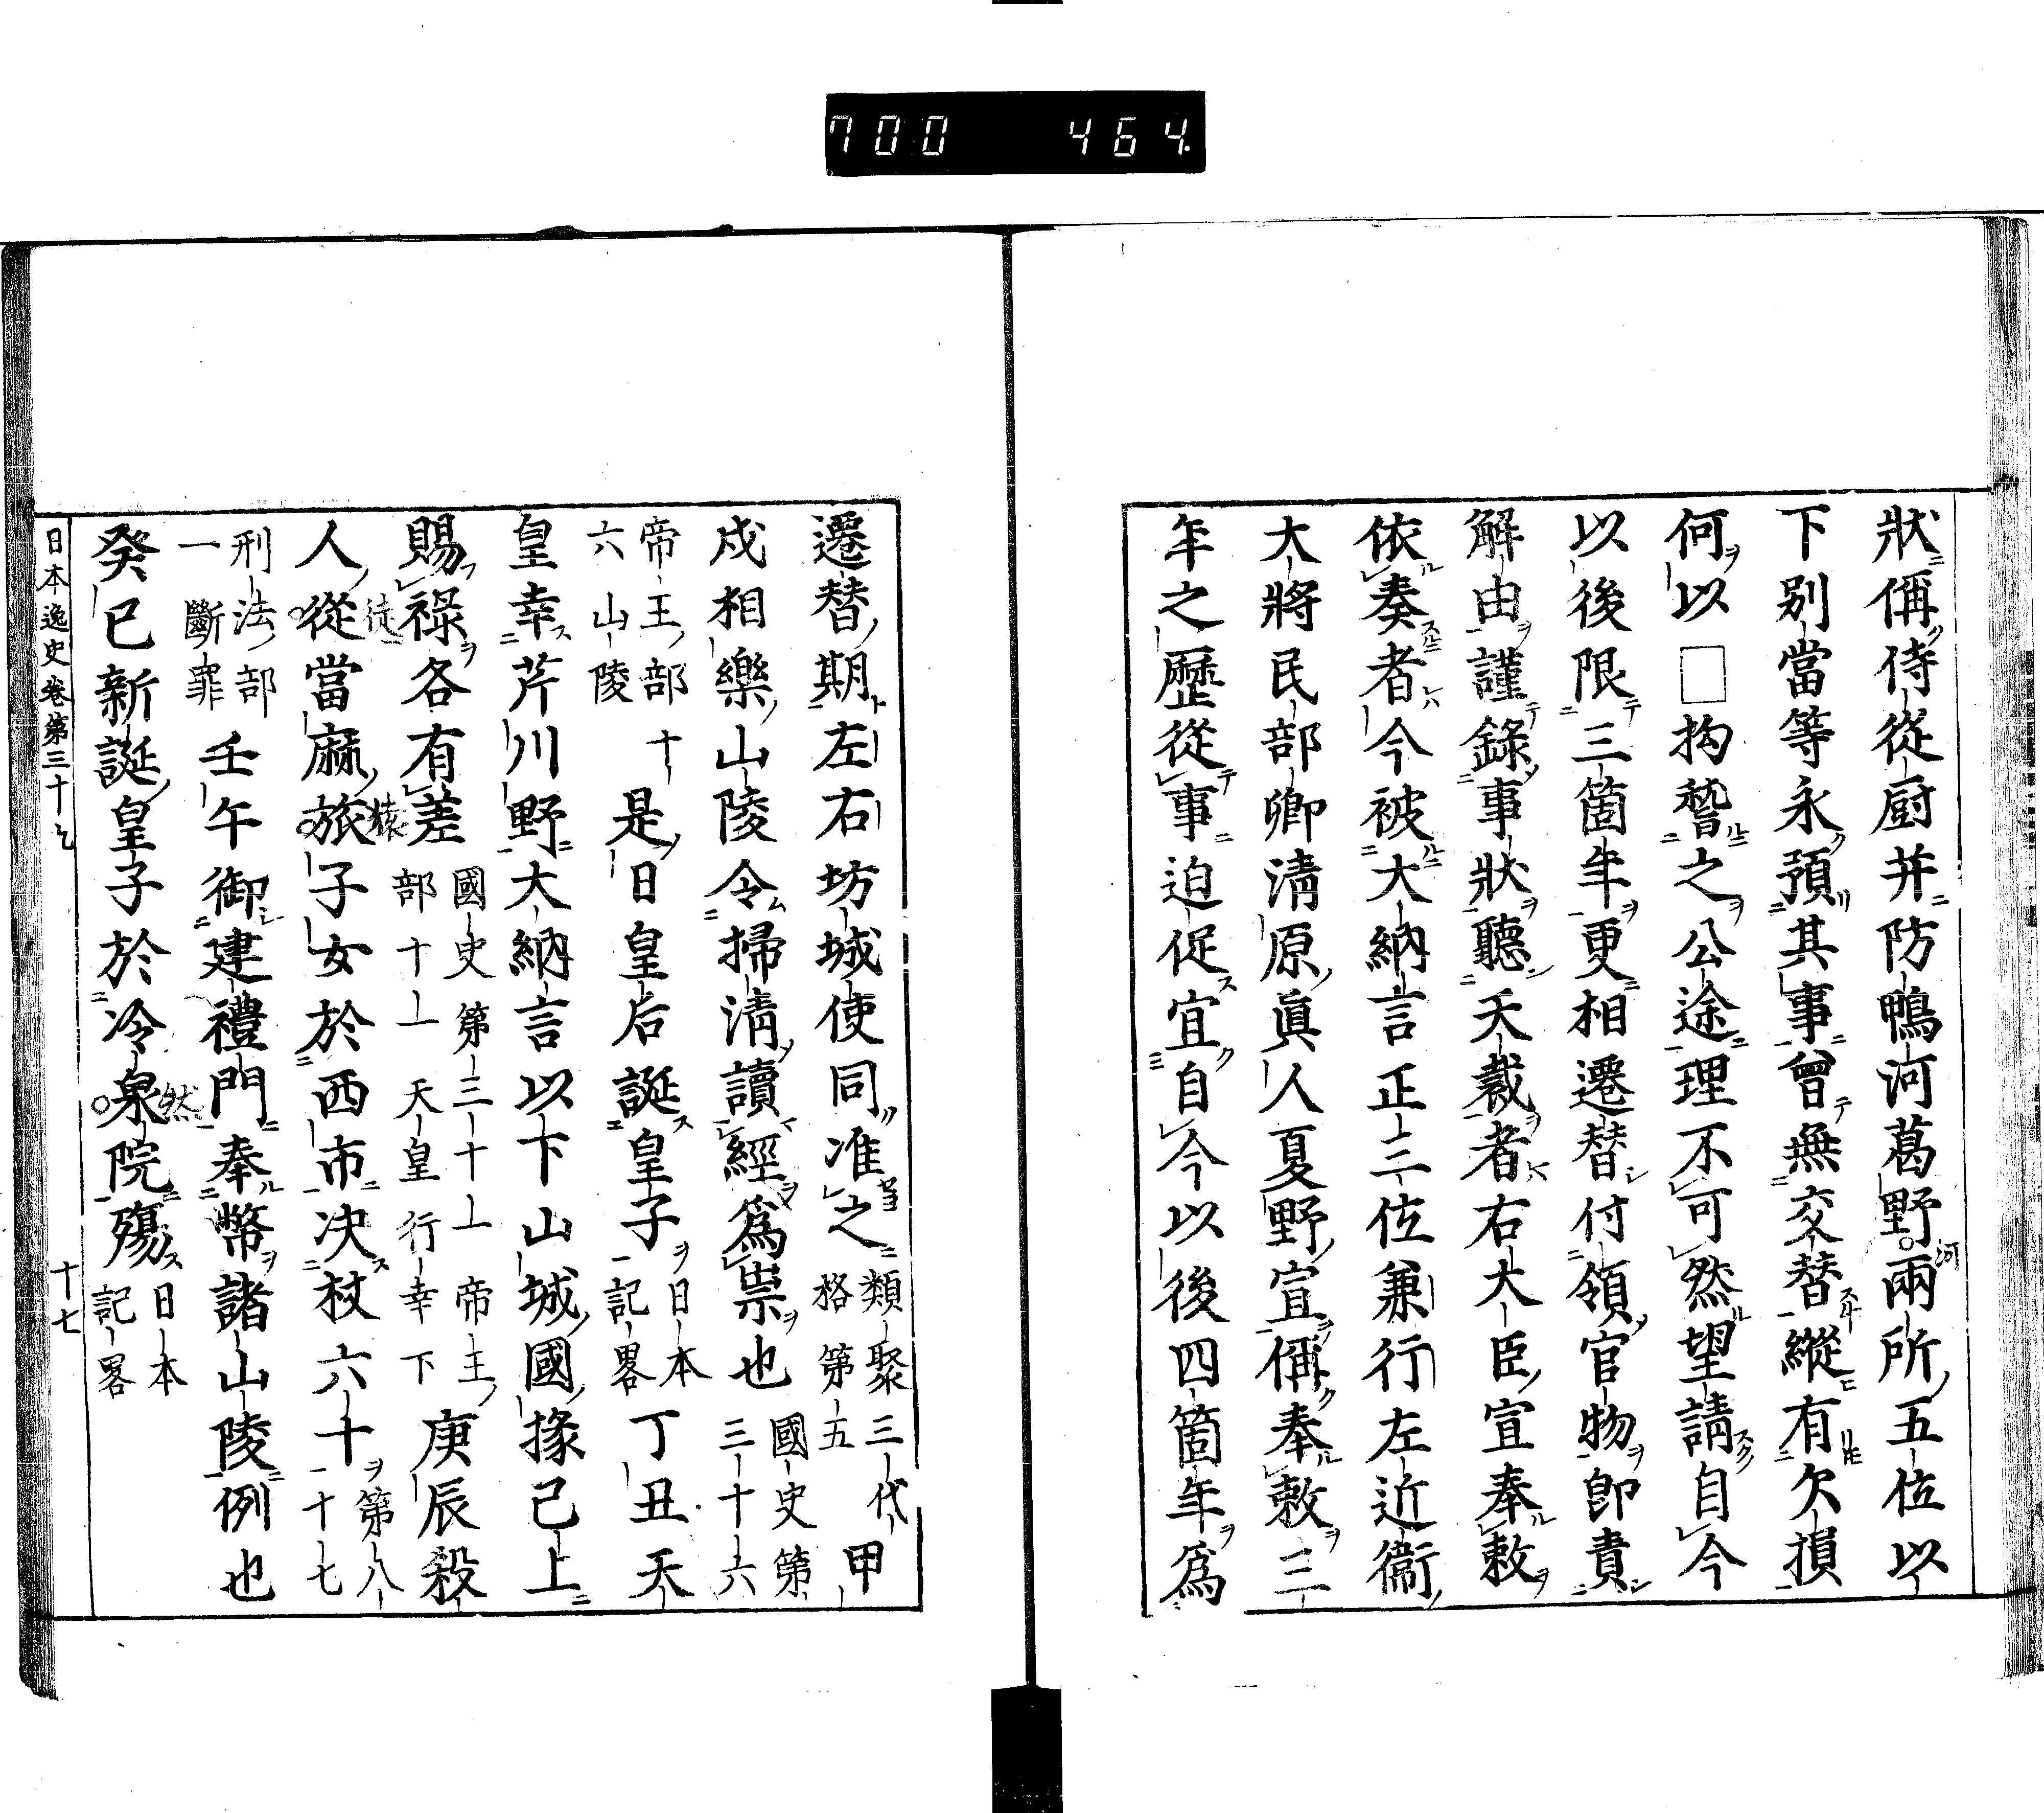 700 464.
狀偁侍從厨并防鴨河葛野兩所五位以
河
下別當等永預其事曾無交替縱有欠損
何以□拘誓之公途理不可然望請自今
以後限三箇年更相遷替付領官物即責
解由謹錄事狀聽天裁者右大臣宣奉敕
依奏者今被大納言正三位兼行左近衞
大將民部卿清原眞人夏野宣偁奉敕三
年之歷從事迫促宜自今以後四箇年爲
遷替期左右坊城使同准之類聚三代格第五甲
戍相樂山陵令掃清讀經爲祟也國史第三十六
帝王部十六山陵是日皇后誕皇子日本記畧丁丑天
皇幸芹川野大納言以下山城國掾已上
賜祿各有差國史第三十一帝王部十一天皇行幸下庚辰殺
人從當麻旅子女於西市决杖六十第八十七
徒
猿
刑法部一斷罪壬午御建禮門奉幣諸山陵例也
癸巳新誕皇子於冷泉院殤日本記畧
然
日本逸史卷第三十七
十七